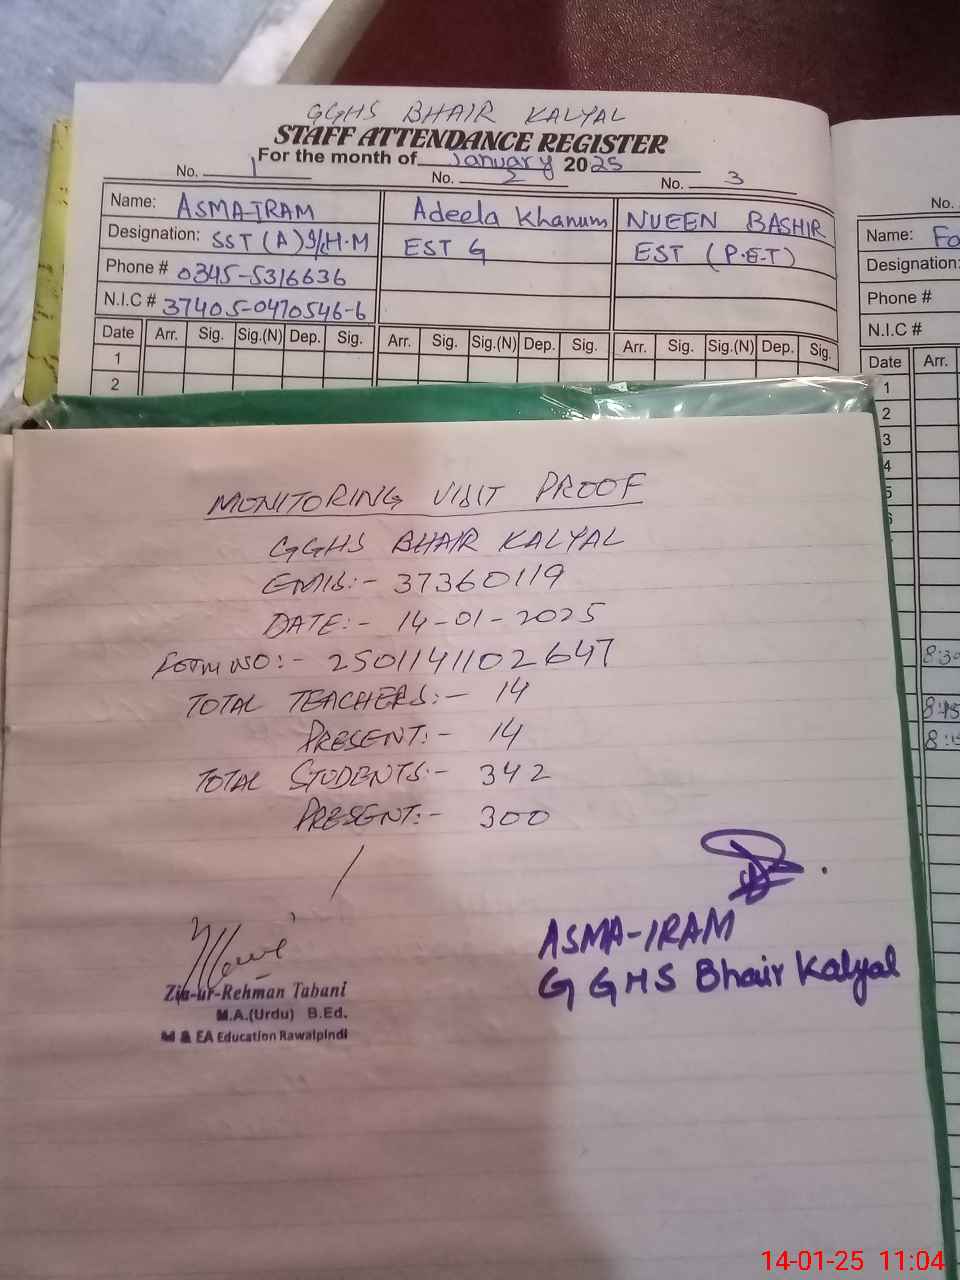 GGHS BHAIR KALYAL
STAFF ATTENDANCE REGISTER
For the month of January 2025
No. 1 No. 2 No. 3
Name: ASMA-IRAM
Designation: SST (A) I/C H.M
Phone # 0345-5316636
N.I.C # 37405-0470546-6
Adeela Khanum
EST G
NUEEN BASHIR
EST (P.E.T)
Date Arr. Sig. Sig.(N) Dep. Sig. Arr. Sig. Sig.(N) Dep. Sig. Arr. Sig. Sig.(N) Dep. Sig.
1
2
No.
Name: Fo
Designation:
Phone #
N.I.C #
Date Arr.
1
2
3
4
5
6
8:30
8:15
MONITORING VISIT PROOF
GGHS BHAIR KALYAL
EMIS:- 37360119
DATE:- 14-01-2025
Form NO:- 25011411102647
TOTAL TEACHERS:- 14
PRESENT:- 14
TOTAL STUDENTS:- 342
PRESENT:- 300
Zia-ur-Rehman Tabani
M.A.(Urdu) B.Ed.
M & EA Education Rawalpindi
ASMA-IRAM
GGHS Bhair Kalyal
14-01-25 11:04